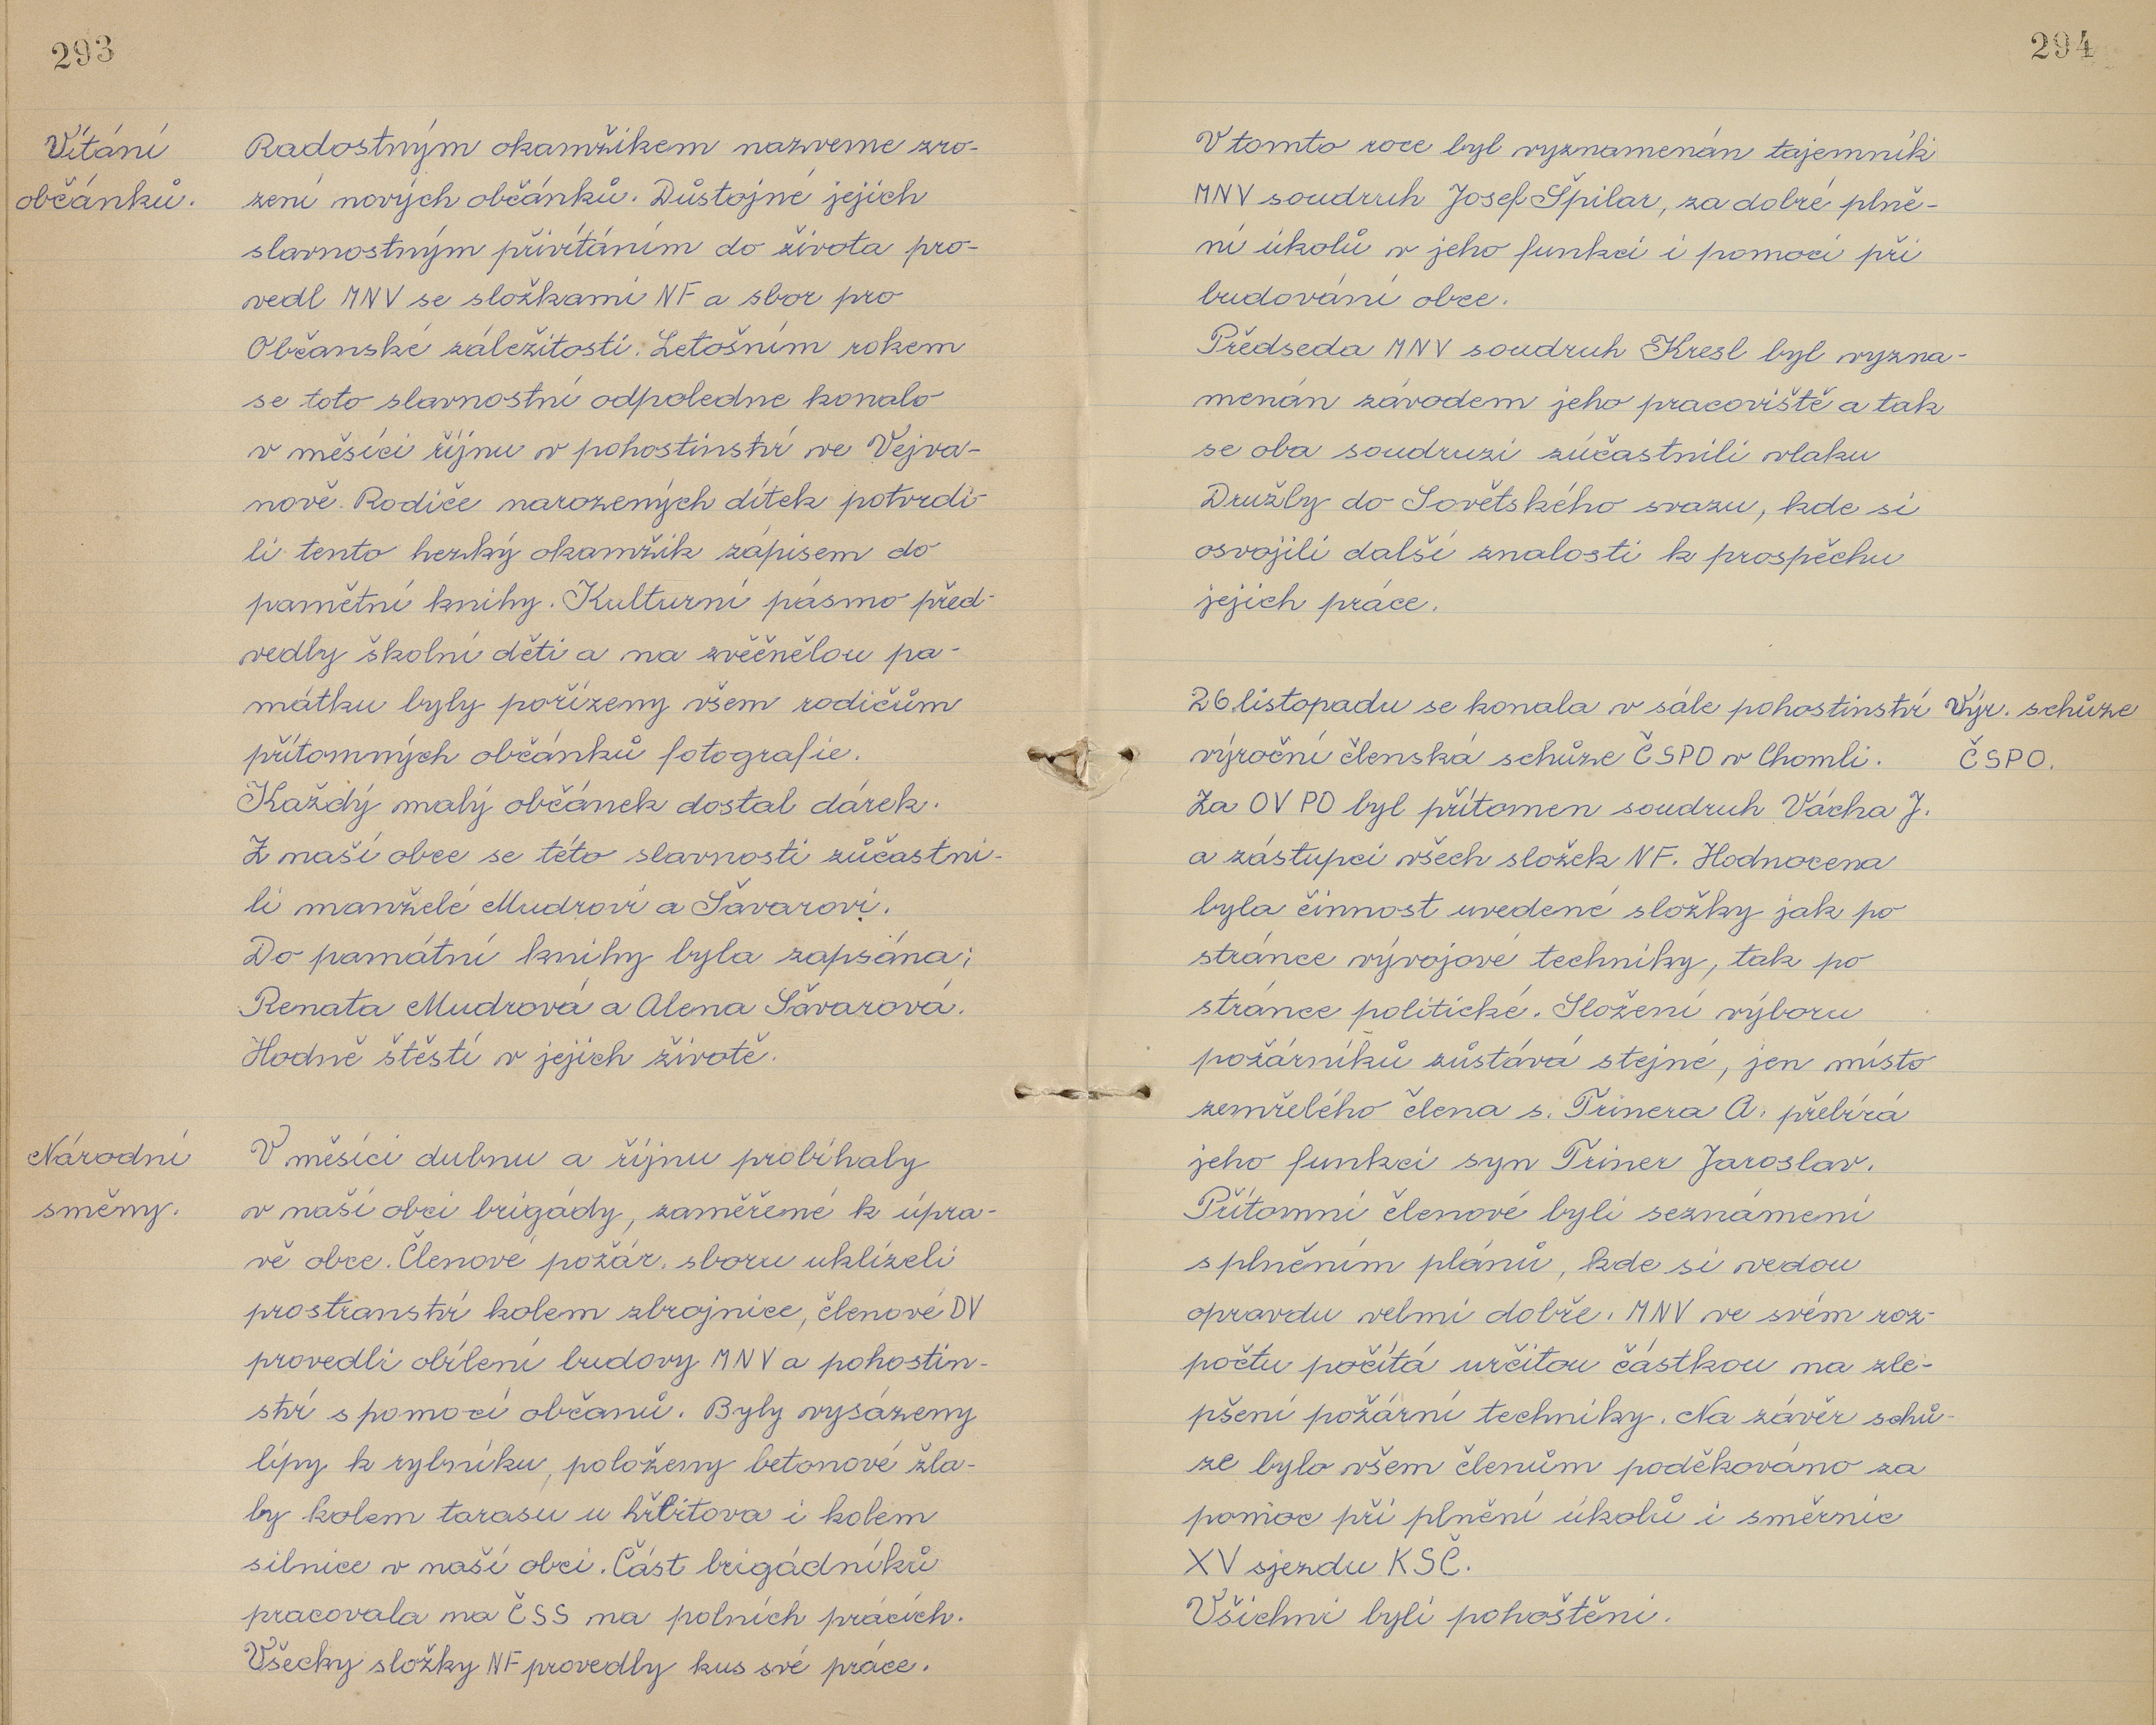 293
Vítání
občánků.
Radostným okamžikem nazveme zro-
zení nových občánků. Důstojné jejich
slavnostným přivítáním do života pro-
vedl MNV se složkami NF a sbor pro
Občanské záležitosti. Letošním rokem
se toto slavnostní odpoledne konalo
v měsíci říjnu v pohostinství ve Vejva-
nově. Rodiče narozených dítek potvrdi-
li tento hezký okamžik zápisem do
pamětní knihy. Kulturní pásmo před-
vedly školní děti a na zvěčnělou pa-
mátku byly pořízeny všem rodičům
přítomných občánků fotografie.
Každý malý občánek dostal dárek.
Z naší obce se této slavnosti zůčastni-
li manželé Mudrovi a Šavarovi.
Do památní knihy byla zapsána;
Renata Mudrová a Alena Šavarová.
Hodně štěstí v jejich životě.
Národní
směny.
V měsíci dubnu a říjnu probíhaly
v naší obci brigády, zaměřené k úpra-
vě obce. Členové požár. sboru uklízeli
prostranství kolem zbrojnice, členové DV
provedli obílení budovy MNV a pohostin-
ství s pomocí občanů. Byly vysázeny
lípy k rybníku, položeny betonové žla-
by kolem tarasu u hřbitova i kolem
silnice v naší obci. Část brigádníků
pracovala na ČSS na polních prácích.
Všecky složky NF provedly kus své práce.
294
V tomto roce byl vyznamenán tajemník
MNV soudruh Josef Špilar, za dobré plně-
ní úkolů v jeho funkci i pomoci při
budování obce.
Předseda MNV soudruh Kresl byl vyzna-
menán závodem jeho pracoviště a tak
se oba soudruzi zúčastnili vlaku
Družby do Sovětského svazu, kde si
osvojili další znalosti k prospěchu
jejich práce.
26. listopadu se konala v sále pohostinství
Výr. schůze
výroční členská schůze ČSPO v Chomli.
ČSPO.
Za OV PO byl přítomen soudruh Vácha J.
a zástupci všech složek NF. Hodnocena
byla činnost uvedené složky jak po
stránce vývojové techniky, tak po
stránce politické. Složení výboru
požárníků zůstává stejné, jen místo
zemřelého člena s. Třinera A. přebírá
jeho funkci syn Třiner Jaroslav.
Přítomní členové byli seznámeni
s plněním plánů, kde si vedou
opravdu velmi dobře. MNV ve svém roz-
počtu počítá určitou částkou na zle-
pšení požární techniky. Na závěr schů-
ze bylo všem členům poděkováno za
pomoc při plnění úkolů i směrnic
XV sjezdu KSČ.
Všichni byli pohoštěni.